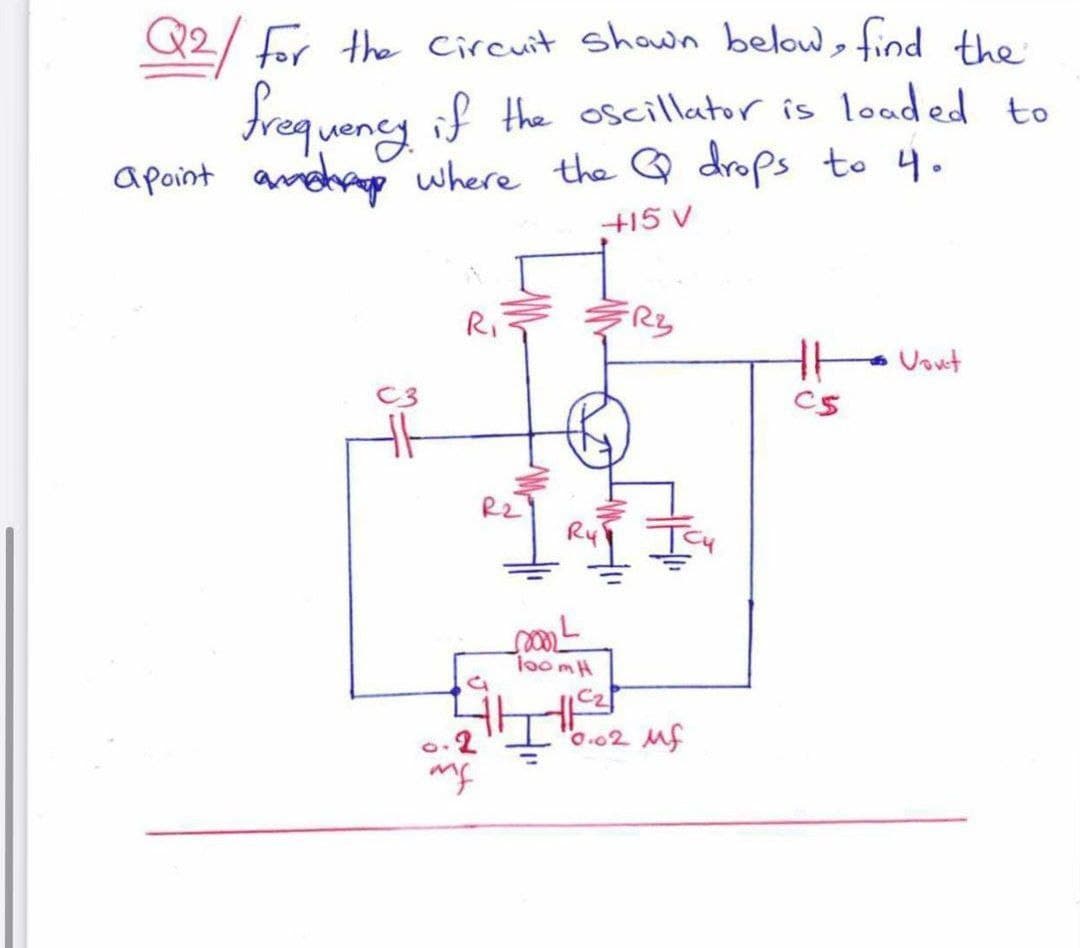 Q2/ For the circuit shown below, find the
frequency if the oscillator is loaded to
a point where the Q drops to 4.
+15 V
R1
R3
Vout
C5
C3
R2
R4
C4
L
100 mH
C1
C2
0.2
mf
0.02 Mf